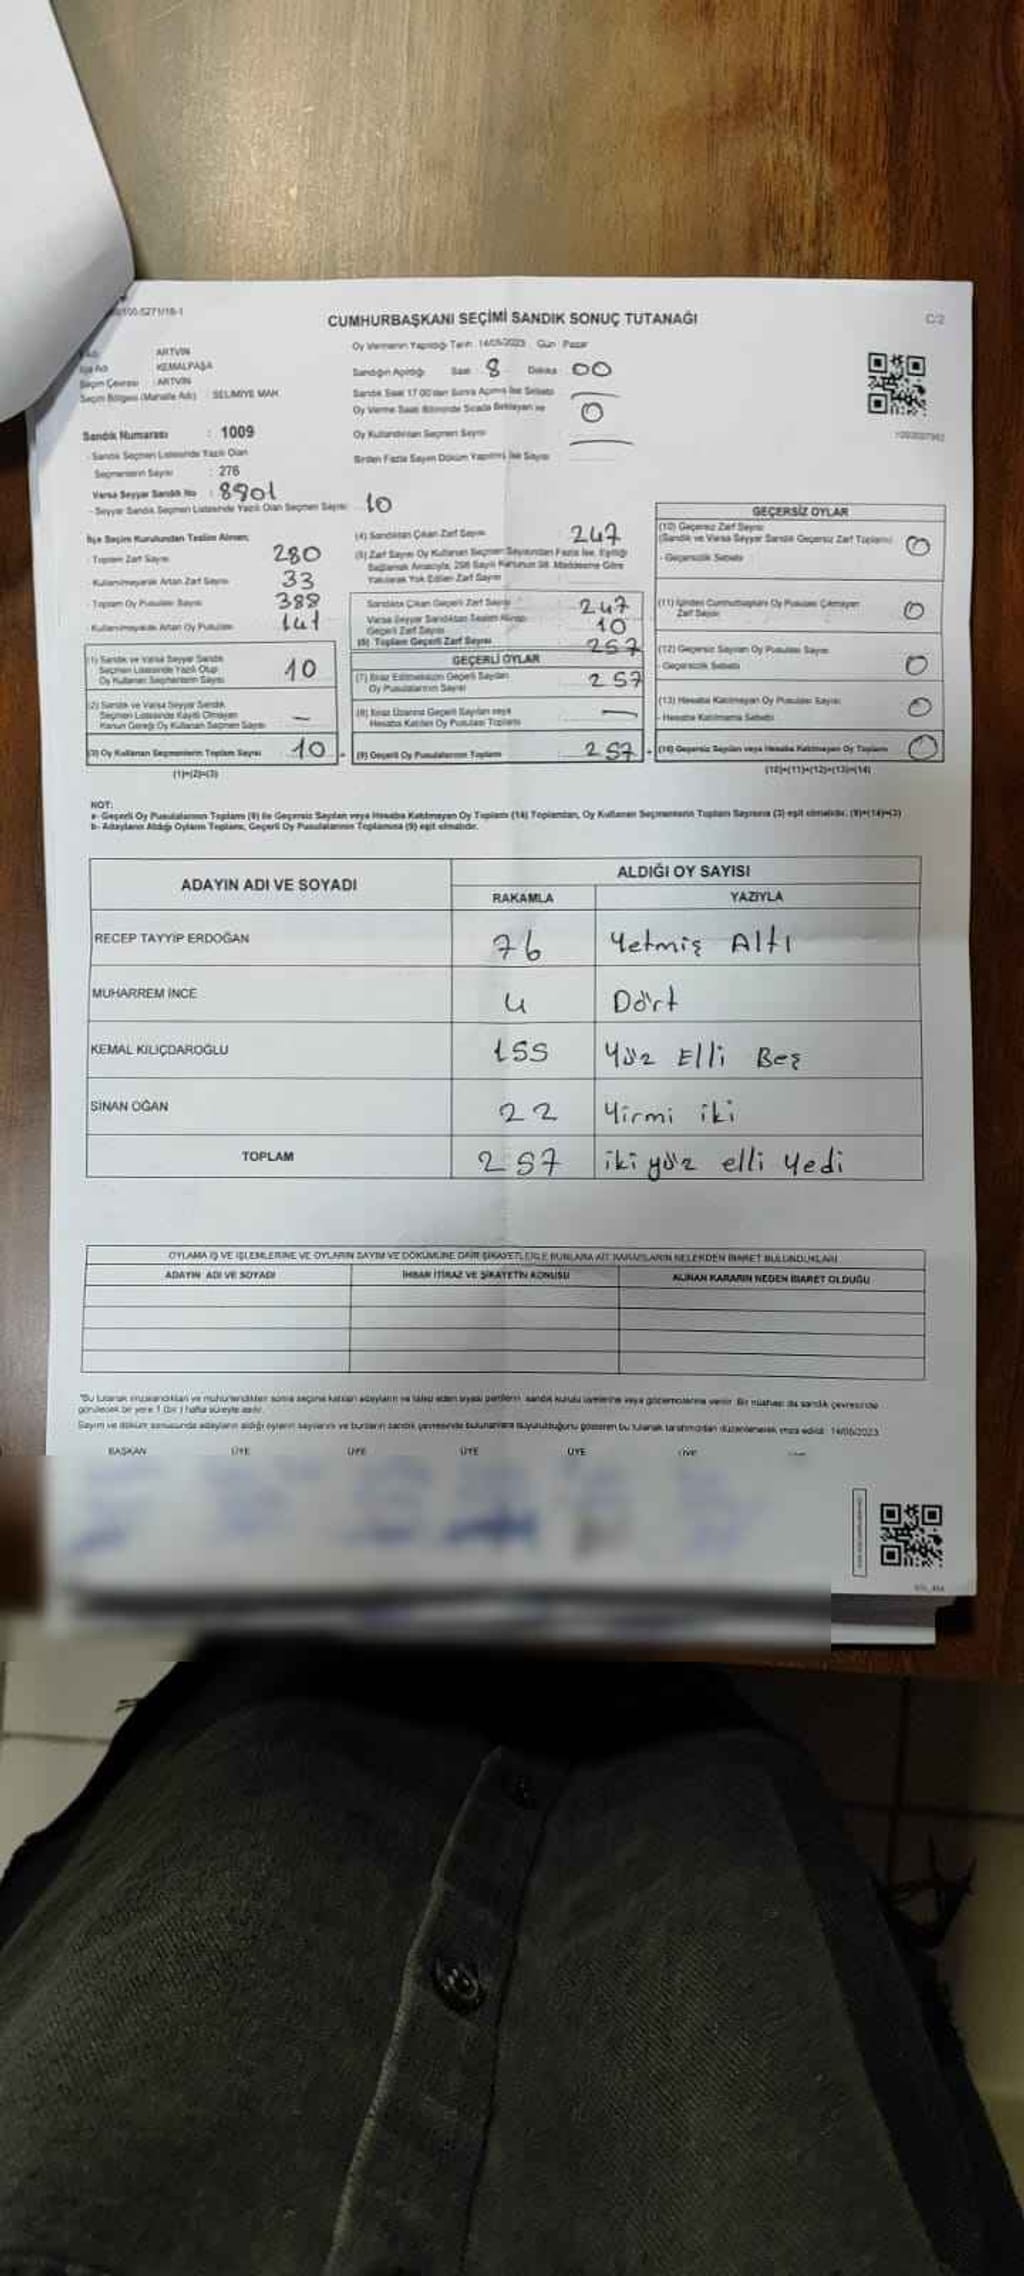 CUMHURBAŞKANI SEÇİMİ SANDIK SONUÇ TUTANAĞI
C/2
Oy Vermenin Yapıldığı Tarih : 14/05/2023 Gün : Pazar
ARTVİN
İlçe Adı KEMALPAŞA
Seçim Çevresi : ARTVİN
Seçim Bölgesi (Mahalle Adı) : SELİMİYE MAH
Sandığın Açıldığı Saat 8 Dakika 00
Sandık Saat 17.00'den Sonra Açılmış İse Sebebi
Oy Verme Saati Bitiminde Sırada Bekleyen ve 0
Oy Kullandırılan Seçmen Sayısı
Birden Fazla Sayım Döküm Yapılmış İse Sayısı
Sandık Numarası : 1009
- Sandık Seçmen Listesinde Yazılı Olan
Seçmenlerin Sayısı : 276
Varsa Seyyar Sandık No : 8901
- Seyyar Sandık Seçmen Listesinde Yazılı Olan Seçmen Sayısı 10
İlçe Seçim Kurulundan Teslim Alınan;
Toplam Zarf Sayısı 280
- Kullanılmayarak Artan Zarf Sayısı 33
- Toplam Oy Pusulası Sayısı 388
- Kullanılmayarak Artan Oy Pusulası 141
(1) Sandık ve Varsa Seyyar Sandık
Seçmen Listesinde Yazılı Olup
Oy Kullanan Seçmenlerin Sayısı 10
(2) Sandık ve Varsa Seyyar Sandık
Seçmen Listesinde Kayıtlı Olmayan
Kanun Gereği Oy Kullanan Seçmen Sayısı —
(3) Oy Kullanan Seçmenlerin Toplam Sayısı 10
(1)+(2)=(3)
(4) Sandıktan Çıkan Zarf Sayısı 247
(5) Zarf Sayısı Oy Kullanan Seçmen Sayısından Fazla İse, Eşitliği
Sağlamak Amacıyla, 298 Sayılı Kanunun 98. Maddesine Göre
Yakılarak Yok Edilen Zarf Sayısı
Sandıkta Çıkan Geçerli Zarf Sayısı 247
Varsa Seyyar Sandıktan Teslim Alınan
Geçerli Zarf Sayısı 10
(6) Toplam Geçerli Zarf Sayısı 257
GEÇERLİ OYLAR
(7) İtiraz Edilmeksizin Geçerli Sayılan
Oy Pusulalarının Sayısı 257
(8) İtiraz Üzerine Geçerli Sayılan veya
Hesaba Katılan Oy Pusulası Toplamı —
(9) Geçerli Oy Pusulalarının Toplamı 257
GEÇERSİZ OYLAR
(10) Geçersiz Zarf Sayısı
(Sandık ve Varsa Seyyar Sandık Geçersiz Zarf Toplamı) 0
- Geçersizlik Sebebi
(11) İçinden Cumhurbaşkanı Oy Pusulası Çıkmayan
Zarf Sayısı 0
(12) Geçersiz Sayılan Oy Pusulası Sayısı 0
- Geçersizlik Sebebi
(13) Hesaba Katılmayan Oy Pusulası Sayısı 0
- Hesaba Katılmama Sebebi
(14) Geçersiz Sayılan veya Hesaba Katılmayan Oy Toplamı 0
(10)+(11)+(12)+(13)=(14)
NOT:
a- Geçerli Oy Pusulalarının Toplamı (9) ile Geçersiz Sayılan veya Hesaba Katılmayan Oy Toplamı (14) Toplamları, Oy Kullanan Seçmenlerin Toplam Sayısına (3) eşit olmalıdır. (9)+(14)=(3)
b- Adayların Aldığı Oyların Toplamı, Geçerli Oy Pusulalarının Toplamına (9) eşit olmalıdır.
ADAYIN ADI VE SOYADI
ALDIĞI OY SAYISI
RAKAMLA YAZIYLA
RECEP TAYYİP ERDOĞAN 76 Yetmiş Altı
MUHARREM İNCE 4 Dört
KEMAL KILIÇDAROĞLU 155 Yüz Elli Beş
SİNAN OĞAN 22 Yirmi iki
TOPLAM 257 iki yüz elli yedi
OYLAMA İŞ VE İŞLEMLERİNE VE OYLARIN SAYIM VE DÖKÜMÜNE DAİR ŞİKAYETLERLE BUNLARA AİT KARARLARIN NELERDEN İBARET BULUNDUKLARI
ADAYIN ADI VE SOYADI İHBAR İTİRAZ VE ŞİKAYETİN KONUSU ALINAN KARARIN NEDEN İBARET OLDUĞU
*Bu tutanak imzalandıktan ve mühürlendikten sonra seçime katılan adayların ve talep eden siyasi partilerin sandık kurulu üyelerine veya gözlemcilerine verilir. Bir nüshası da sandık çevresinde
görülecek bir yere 1 (bir) hafta süreyle asılır.
Sayım ve döküm sonucunda adayların aldığı oyların sayılarını ve bunların sandık çevresinde bulunanlara duyurulduğunu gösteren bu tutanak tarafımızdan düzenlenerek imza edildi. 14/05/2023
BAŞKAN ÜYE ÜYE ÜYE ÜYE ÜYE